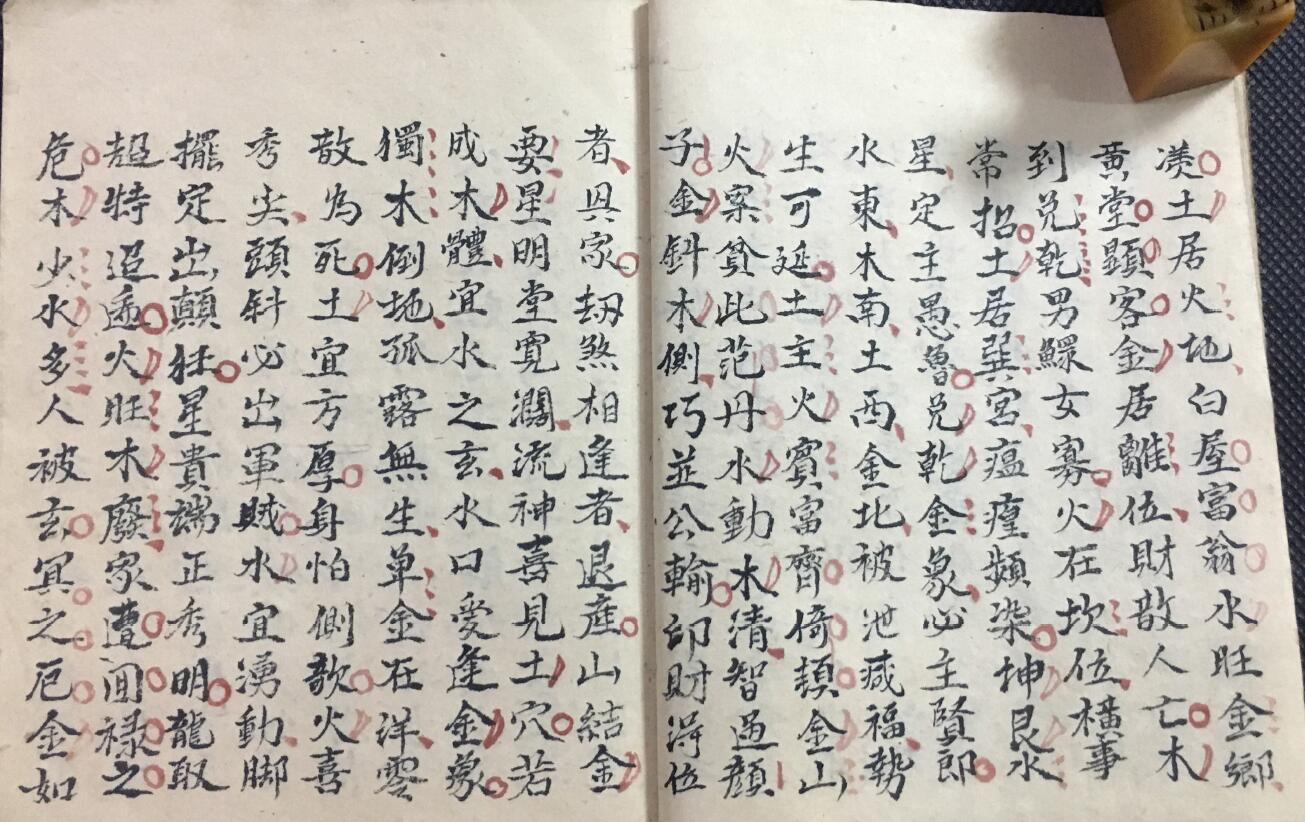 渼土居火地白屋富翁水旺金鄉
黄堂顕客金居離位財散人亡木
到兑乾男鰥女寡火在坎位橫事
常招土居巽宮瘟㾮頻染坤艮水
星定主愚魯兑乾金象必主賢郎
水東木南土西金北被泄减福勢
生可延土主火賓富齊倚頓金山
火案貧此范丹水動木清智過顏
子金斜木側巧並公輸卯財得位
者具家刼煞相逢者退產山結金
要星明堂寬濶流神喜見土穴若
成木體宜水之玄水口爱逢金象
獨木倒地孤露無生单金在洋零
散為死土宜方厚身怕側欹火喜
秀尖頭斜必出軍賊水宜湧動脚
擺定出顛狂星貴端正秀明龍取
超特迢遞火旺木廢家遭囬禄之
危木少水多人被玄冥之厄金如